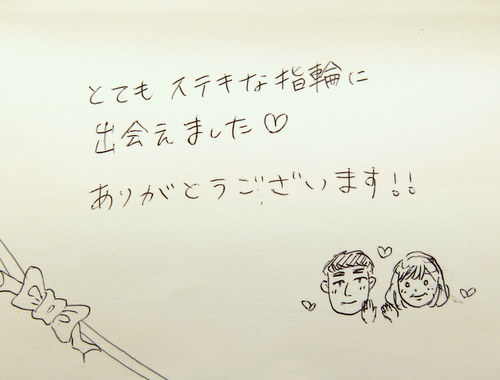 とても ステキな指輪に
出会えました♡
ありがとうございます!!